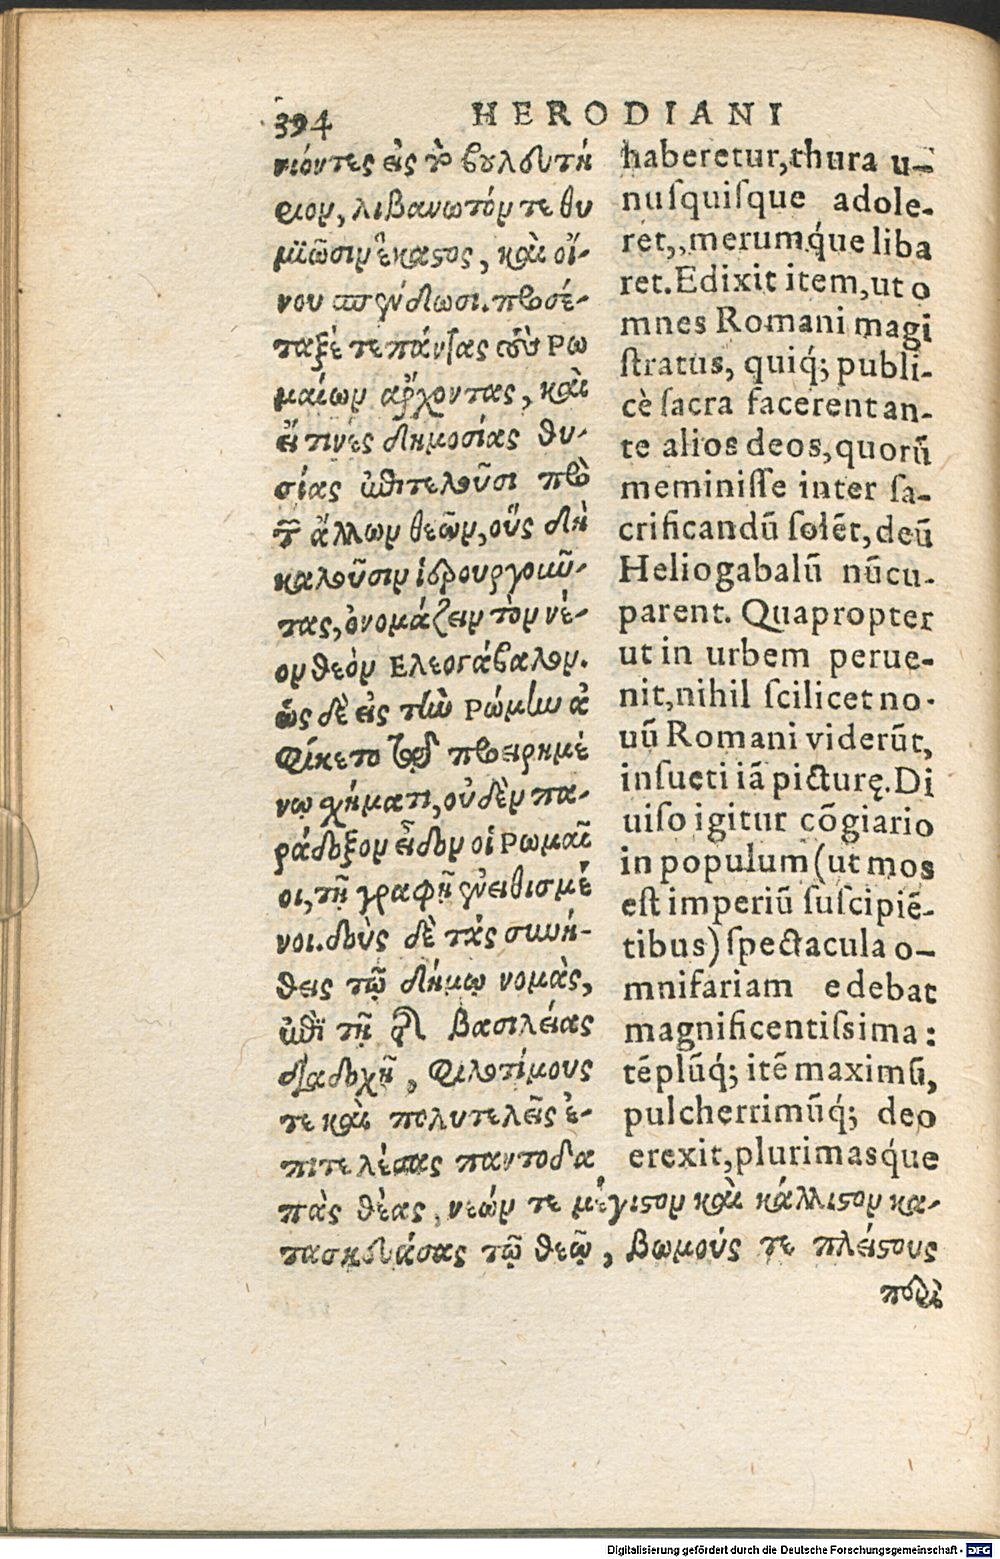 394
HERODIANI
νιόντες εἰς τὸ βουλευτή
ριον, λιβανωτόν τε θυ
μιῶσιν ἕκαστος, καὶ οἴ-
νου σπένδωσι. προσέ-
ταξέ τε πάντας τοὺς Ρω
μαίων ἄρχοντας, καὶ
εἴ τινες δημοσίας θυ-
σίας ἐπιτελοῦσι πρὸ
τῶν ἄλλων θεῶν, οὓς δὴ
καλοῦσιν ἱερουργοιῶν-
τας, ὀνομάζειν τὸν νέ-
ον θεὸν Ελεογάβαλον.
ὡς δὲ εἰς τὴν Ρώμην ἀ
φίκετο τῷ προειρημέ
νῳ χήματι, οὐδὲν πα-
ράδοξον εἶδον οἱ Ρωμαῖ
οι, τῇ γραφῇ ἐνειθισμέ
νοι. δοὺς δὲ τὰς συνή-
θεις τῷ δήμῳ νομὰς,
ἐπὶ τῇ τῆς βασιλείας
διαδοχῇ, φιλοτίμους
τε καὶ πολυτελεῖς ἐ-
πιτελέσας παντοδα
πὰς θέας, νεών τε μέγιστον καὶ κάλλιστον κα-
τασκευάσας τῷ θεῷ, βωμούς τε πλείστους
haberetur, thura u-
nusquisque adole-
ret,, merumq́ue liba
ret. Edixit item, ut o
mnes Romani magi
stratus, quiq́; publi-
cè sacra facerent an-
te alios deos, quorũ
meminisse inter sa-
crificandũ solẽt, deũ
Heliogabalũ nũcu-
parent. Quapropter
ut in urbem perue-
nit, nihil scilicet no-
uũ Romani viderũt,
insueti iã picturę. Di
uiso igitur cõgiario
in populum (ut mos
est imperiũ suscipiẽ-
tibus) spectacula o-
mnifariam edebat
magnificentissima:
tẽplũq́; itẽ maximũ,
pulcherrimũq́; deo
erexit, plurimasq́ue
Digitalisierung gefördert durch die Deutsche Forschungsgemeinschaft - DFG